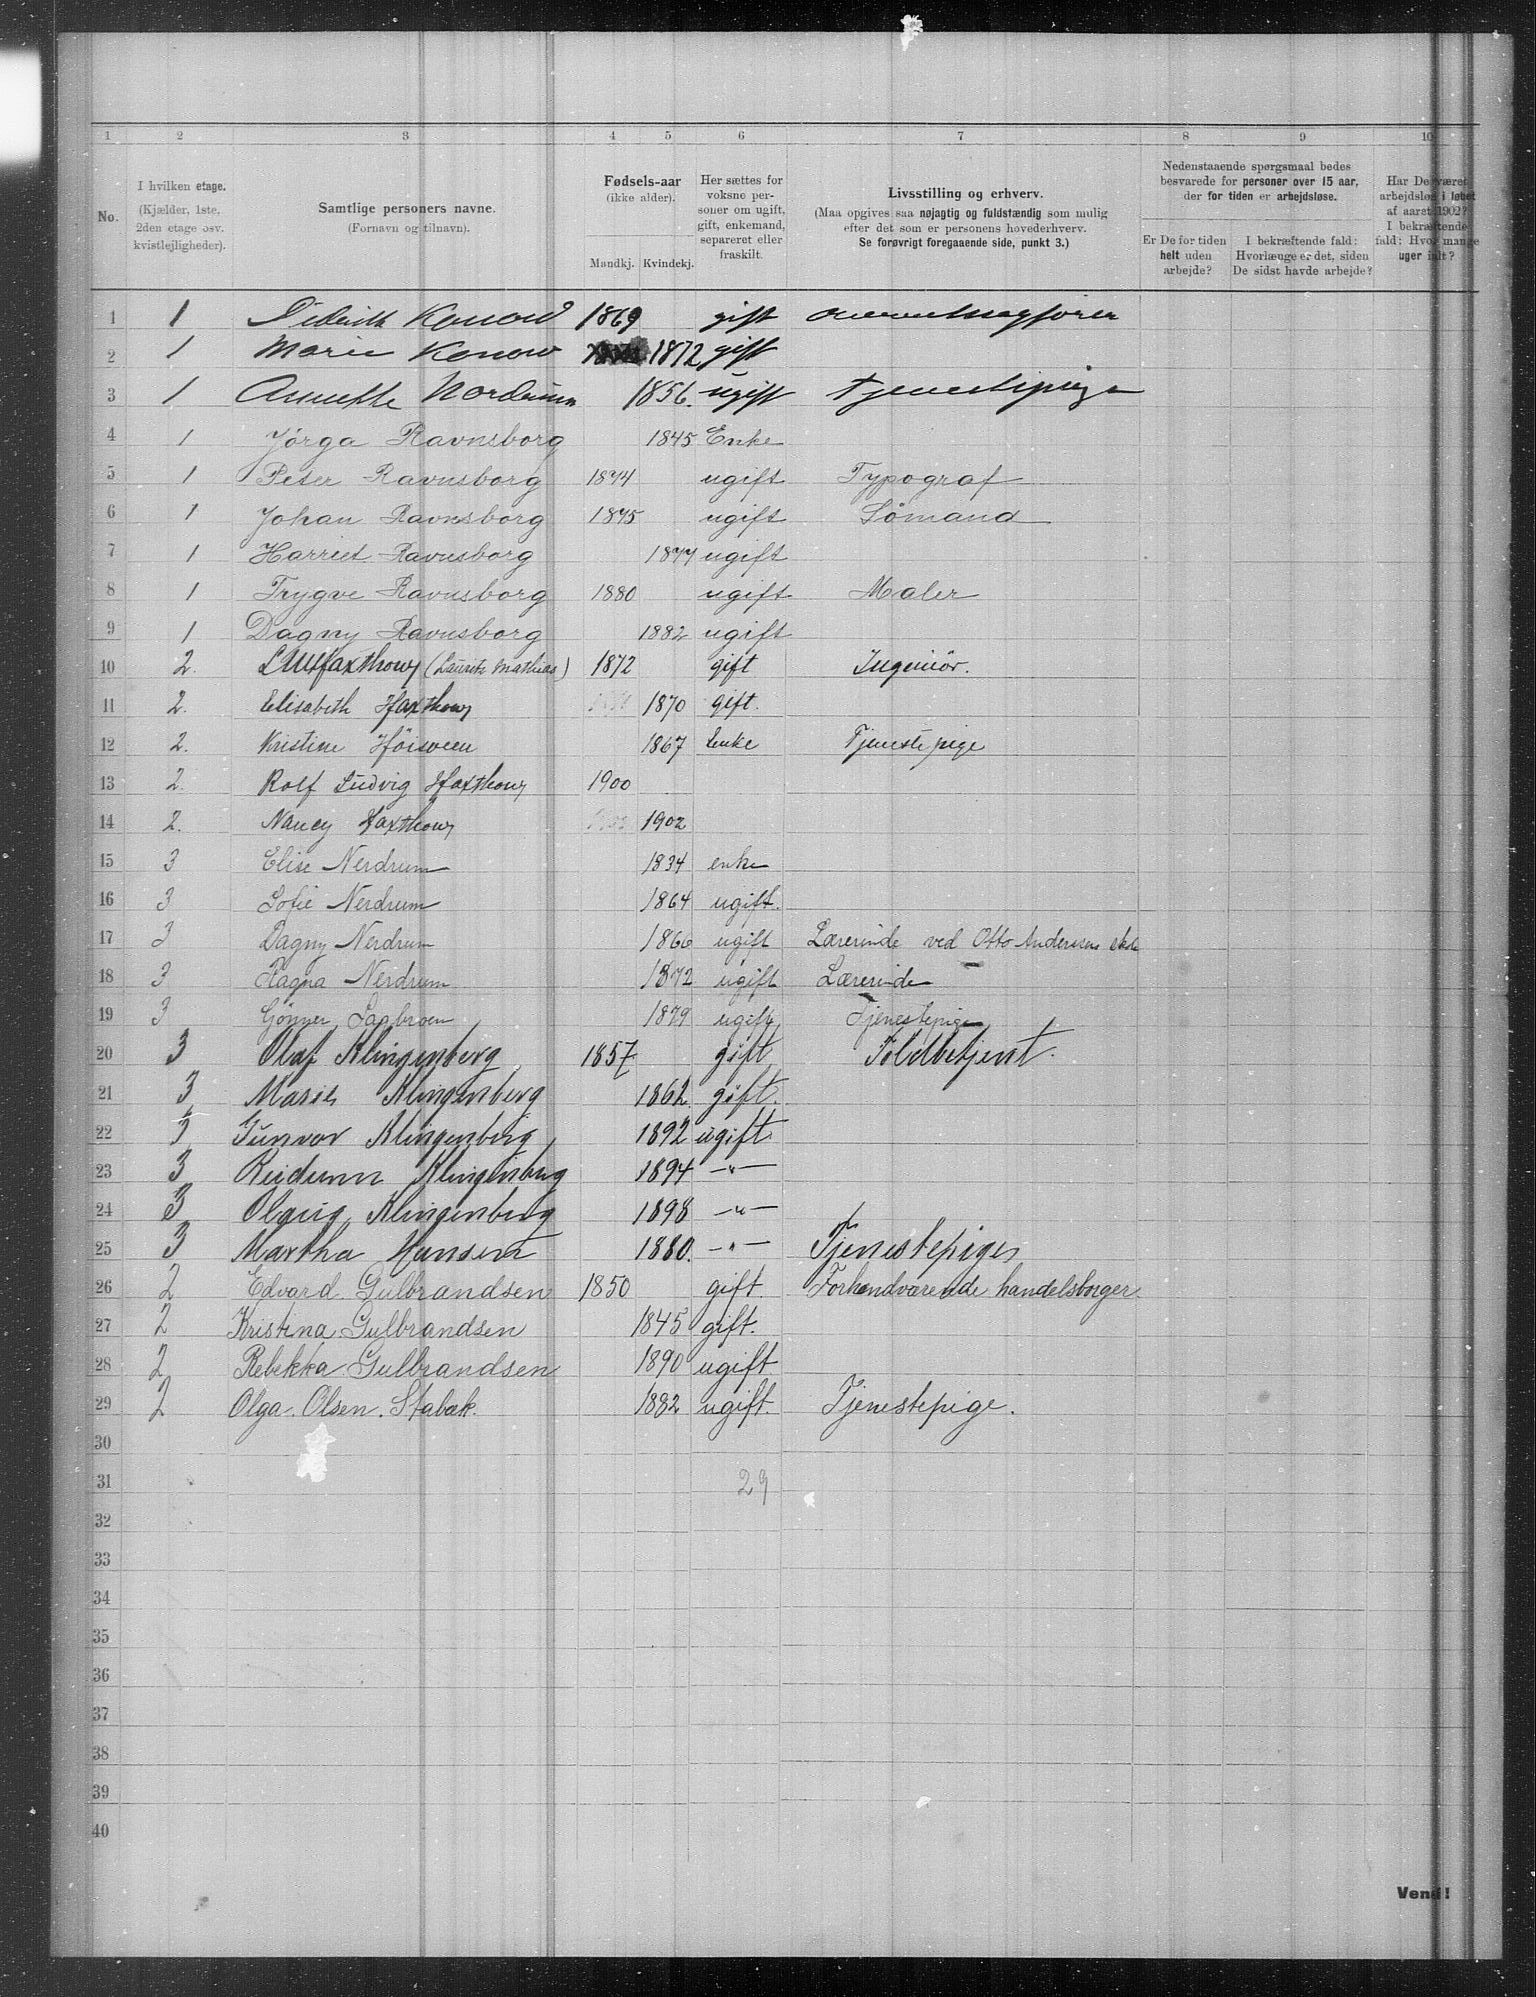 1 2 3 4 5 6 7 8 9 10
No.
I hvilken etage.
(Kjælder, 1ste,
2den etage osv.
kvistlejligheder).
Samtlige personers navne.
(Fornavn og tilnavn).
Fødsels-aar
(ikke alder).
Mandkj. Kvindekj.
Her sættes for
voksne per-
soner om ugift,
gift, enkemand,
separeret eller
fraskilt.
Livsstilling og erhverv.
(Maa opgives saa nøjagtig og fuldstændig som mulig
efter det som er personens hovederhverv.
Se forøvrigt foregaaende side, punkt 3.)
Nedenstaaende spørgsmaal bedes
besvarede for personer over 15 aar,
der for tiden er arbejdsløse.
Er De for tiden
helt uden
arbejde?
I bekræftende fald:
Hvorlænge er det, siden
De sidst havde arbejde?
Har De været
arbejdsløs i løbet
af aaret 1902?
I bekræftende
fald: Hvor mange
uger ialt?
1 1 Diderik Konow 1869 gift overretssagfører
2 1 Marie Konow 1872 gift
3 1 Annette Nordrum 1856. ugift Tjenestepige
4 1 Jørga Ravnsborg 1845 Enke
5 1 Peter Ravnsborg 1874 ugift Typograf
6 1 Johan Ravnsborg 1875 ugift Sømand
7 1 Harriet Ravnsborg 1877 ugift
8 1 Trygve Ravnsborg 1880 ugift Maler
9 1 Dagny Ravnsborg 1882 ugift
10 2. LMHaxthow (Laurits Mathias) 1872 gift Ingeniör.
11 2. Elisabeth Haxthow 1870 gift.
12 2. Kristine Höisveen 1867 Enke Tjenestepige
13 2. Rolf Ludvig Haxthow 1900
14 2. Nancy Haxthow 1902
15 3 Elise Nerdrum 1834 enke
16 3 Sofie Nerdrum 1864 ugift.
17 3 Dagny Nerdrum 1866 ugift Lærerinde ved Otto Andersens skole
18 3 Ragna Nerdrum 1872 ugift Lærerinde
19 3 1879 ugift Tjenestepige
20 3 Olaf Klingenberg 1857 gift Toldbetjent.
21 3 Marie Klingenberg 1862 gift.
22 3 Gunvor Klingenberg 1892 ugift
23 3 Reidunn Klingenberg 1894 —"—
24 3 Olaug Klingenberg 1898 —"—
25 3 Martha Hansen 1880. —"— Tjenestepige
26 2 Edvard Gulbrandsen 1850 gift. Forhenværende handelsborger
27 2 Kristina Gulbrandsen 1845 gift.
28 2 Rebekka Gulbrandsen 1890 ugift
29 2 Olga. Olsen. Stabæk. 1882 ugift. Tjenestepige.
30
31 29
32
33
34
35
36
37
38
39
40
Vend!